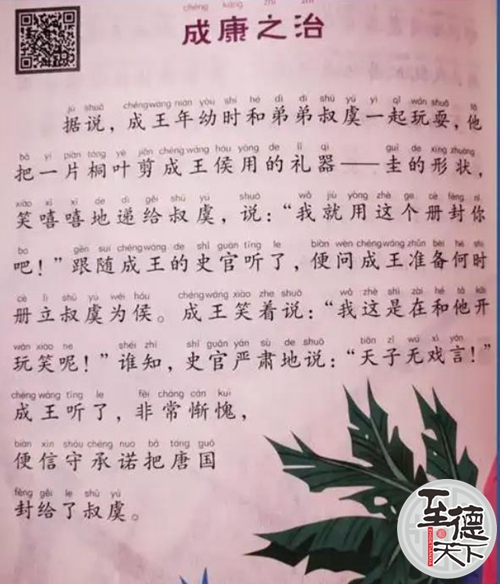 chéng kāng zhī zhì
成康之治
jù shuō chéngwáng nián yòu shí hé dì di shū yú yì qǐ wán shuǎ tā
据说，成王年幼时和弟弟叔虞一起玩耍，他
bǎ yí piàn tóng yè jiǎn chéng wáng hóu yòng de lǐ qì guī de xíng zhuàng
把一片桐叶剪成王侯用的礼器——圭的形状，
xiào xī xī de dì gěi shū yú shuō wǒ jiù yòng zhè ge cè fēng nǐ
笑嘻嘻地递给叔虞，说：“我就用这个册封你
ba gēn suí chéngwáng de shǐ guān tīng le biàn wèn chéngwáng zhǔn bèi hé shí
吧！”跟随成王的史官听了，便问成王准备何时
cè lì shū yú wéi hóu chéngwáng xiào zhe shuō wǒ zhè shì zài hé tā kāi
册立叔虞为侯。成王笑着说：“我这是在和他开
wán xiào ne shéi zhī shǐ guān yán sù de shuō tiān zǐ wú xì yán
玩笑呢！”谁知，史官严肃地说：“天子无戏言！”
chéngwáng tīng le fēi cháng cán kuì
成王听了，非常惭愧，
biàn xìn shǒu chéng nuò bǎ táng guó
便信守承诺把唐国
fēng gěi le shū yú
封给了叔虞。
至德天下